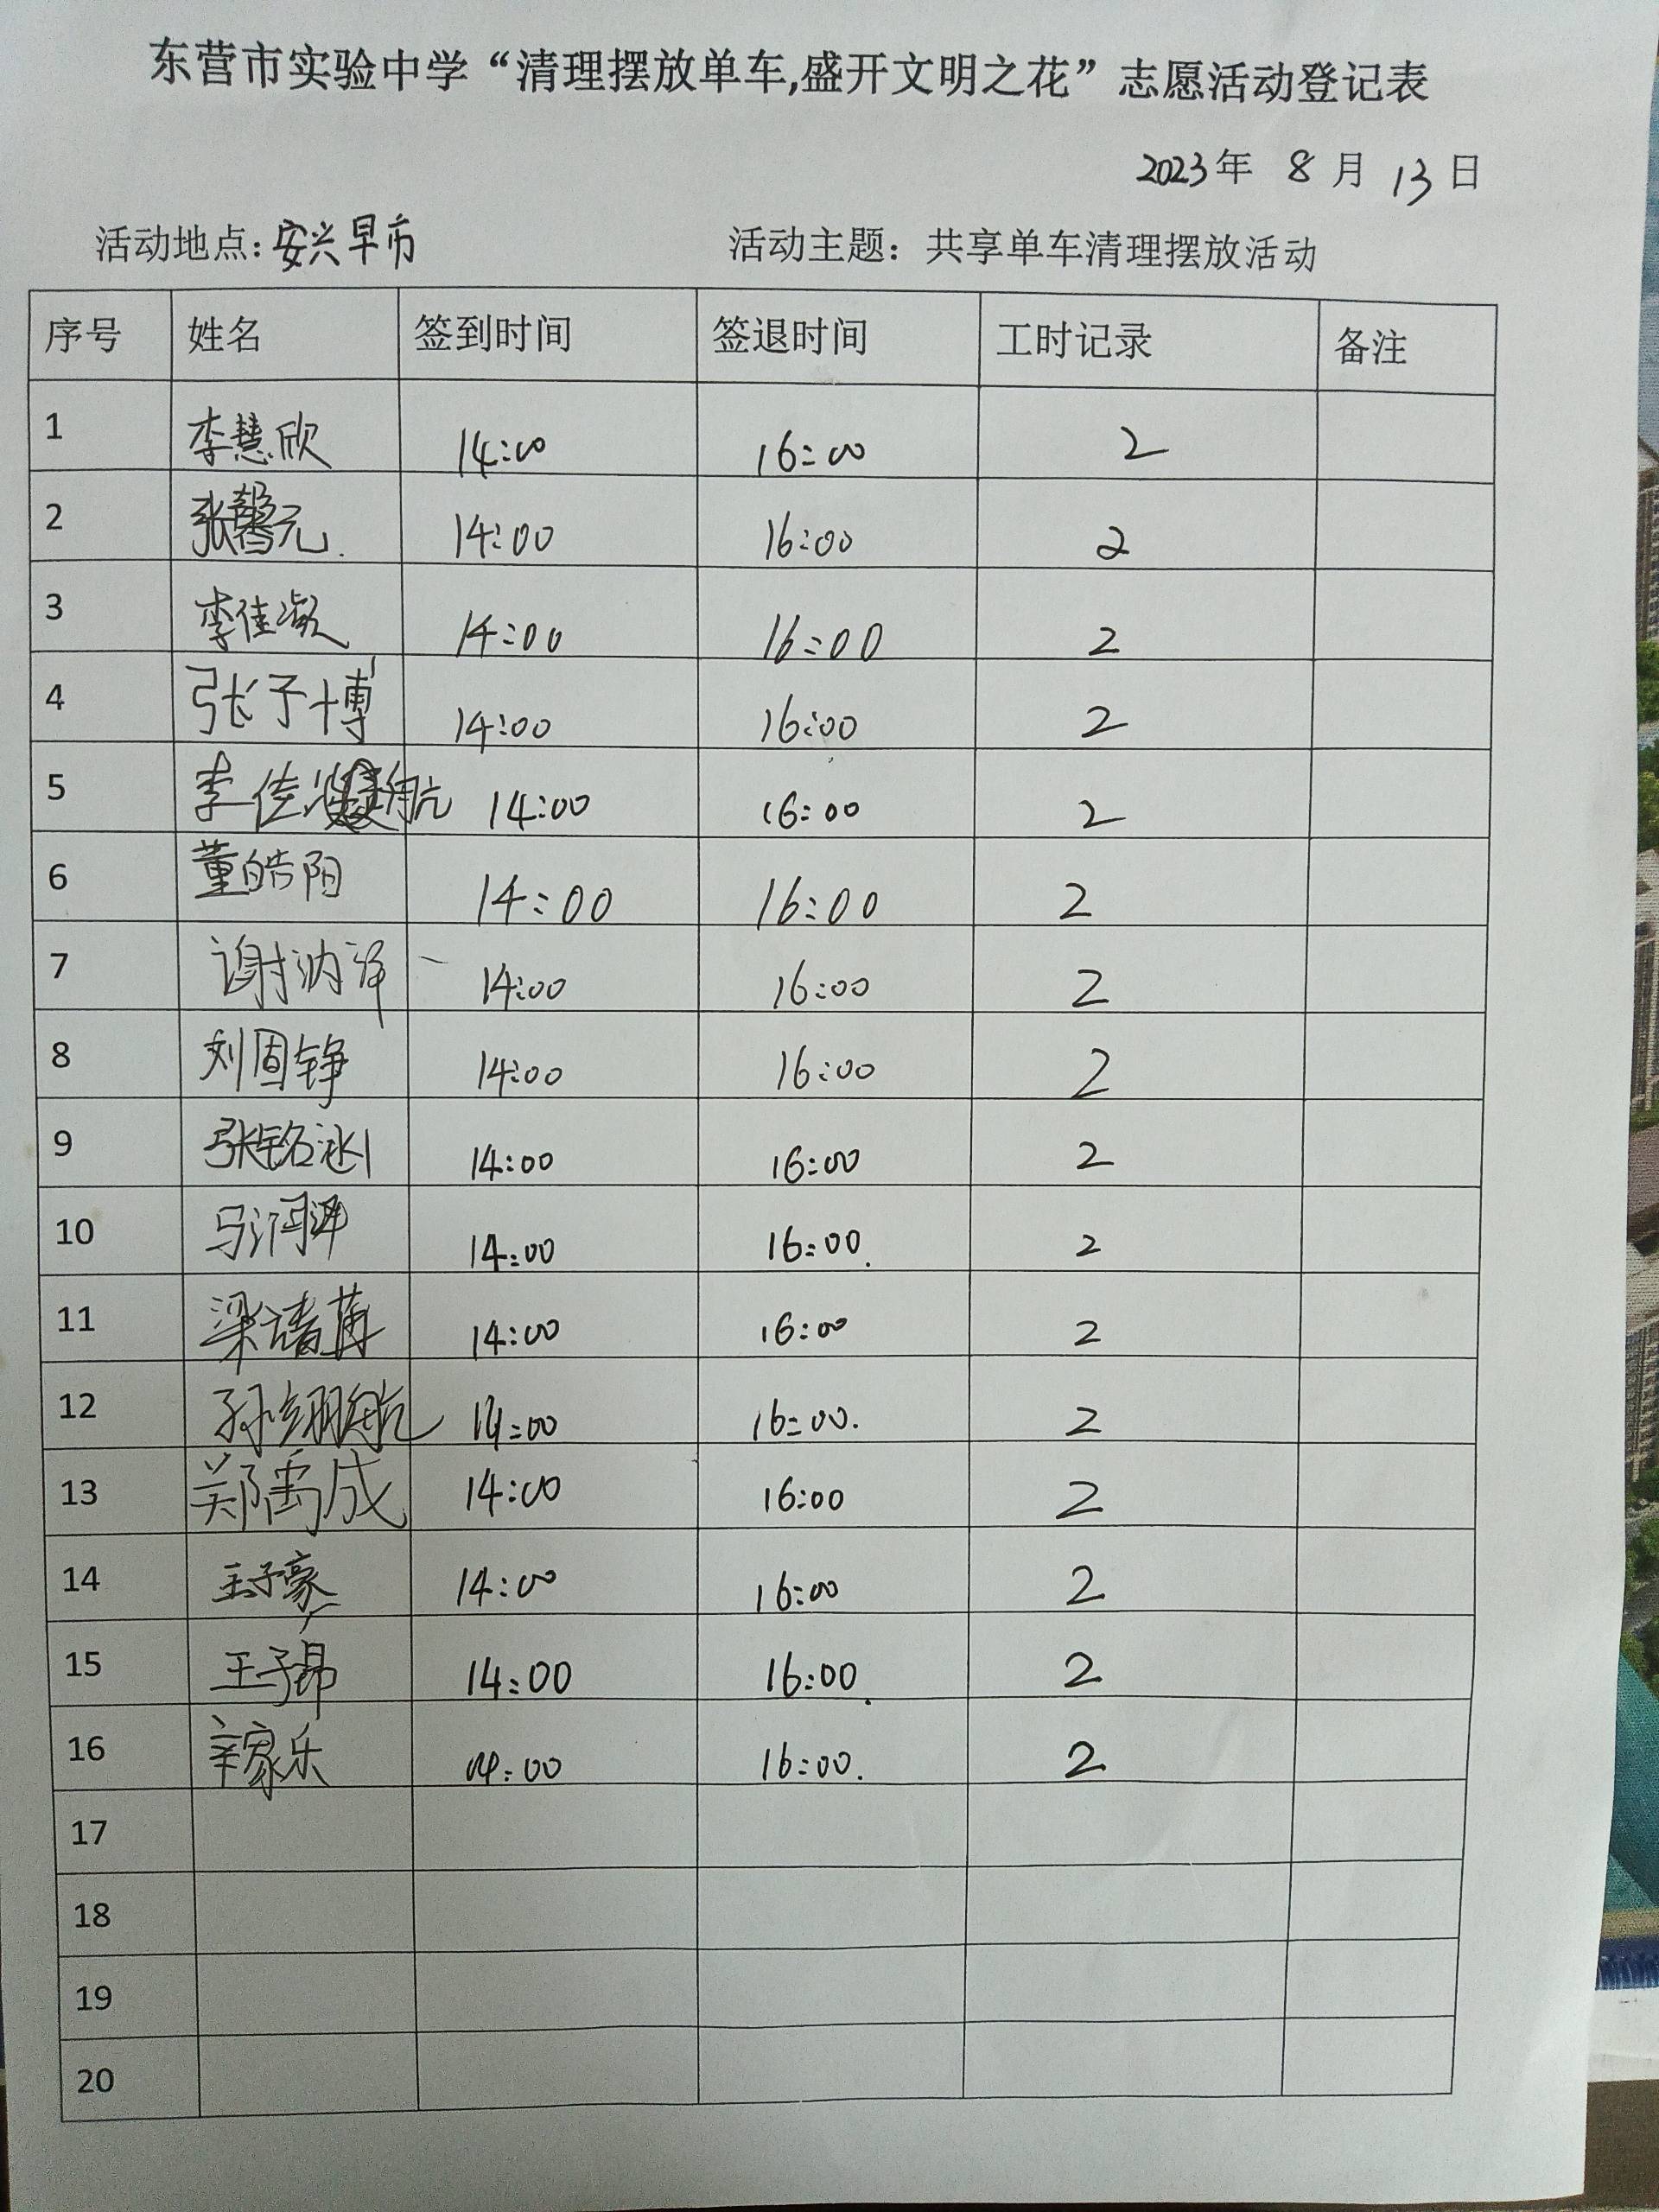 东营市实验中学“清理摆放单车,盛开文明之花”志愿活动登记表
2023年 8 月 13 日
活动地点: 安兴早市 活动主题: 共享单车清理摆放活动
序号 姓名 签到时间 签退时间 工时记录 备注
1 李慧欣 14:00 16:00 2
2 张馨元 14:00 16:00 2
3 李佳凝 14:00 16:00 2
4 张予博 14:00 16:00 2
5 李佳航 14:00 16:00 2
6 董皓阳 14:00 16:00 2
7 谢汭泽 14:00 16:00 2
8 刘固铮 14:00 16:00 2
9 张铭 14:00 16:00 2
10 马润泽 14:00 16:00. 2
11 梁 14:00 16:00 2
12 孙翊航 14:00 16:00. 2
13 郑禹成 14:00 16:00 2
14 王子豪 14:00 16:00 2
15 王子昂 14:00 16:00. 2
16 辛家乐 14:00 16:00. 2
17
18
19
20